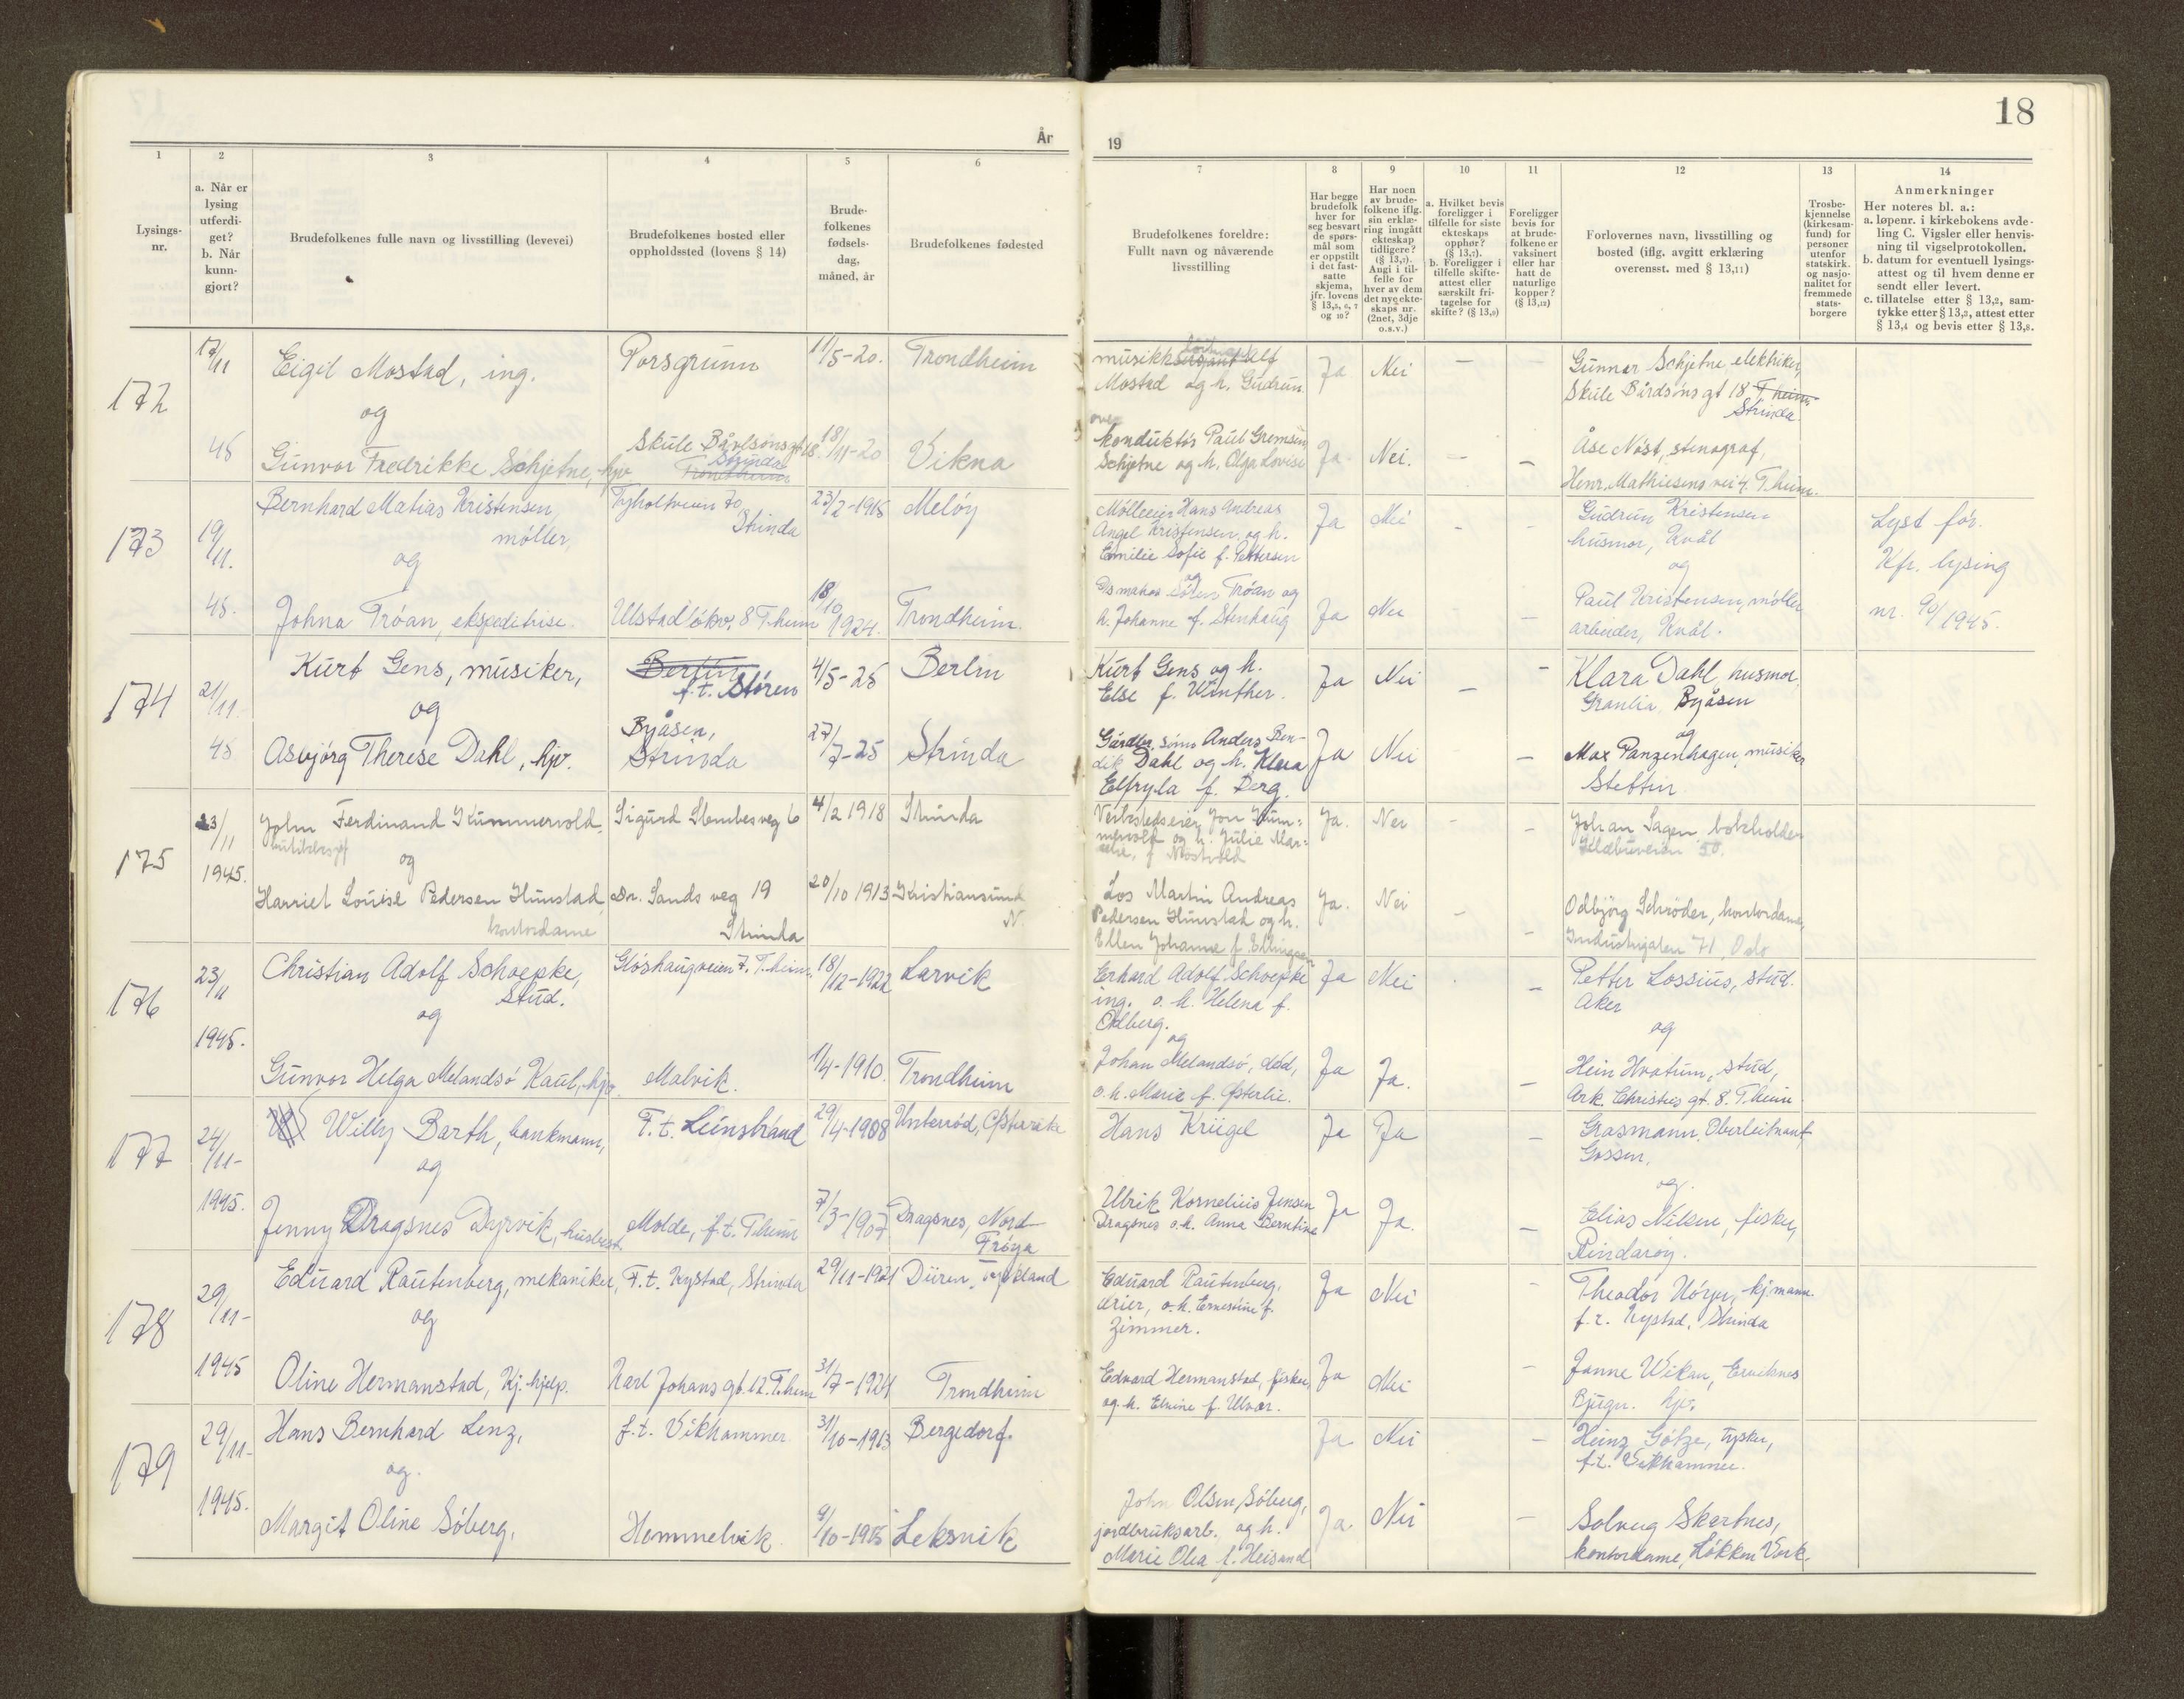 18
År
19
1
2
3
4
5
6
7
8
9
10
11
12
13
14
Lysings-
nr.
a. Når er
lysing
utferdi-
get?
b. Når
kunn-
gjort?
Brudefolkenes fulle navn og livsstilling (levevei)
Brudefolkenes bosted eller
oppholdssted (lovens § 14)
Brude-
folkenes
fødsels-
dag,
måned, år
Brudefolkenes fødested
Brudefolkenes foreldre:
Fullt navn og nåværende
livsstilling
Har begge
brudefolk
hver for
seg besvart
de spørs-
mål som
er oppstilt
i det fast-
satte
skjema,
jfr. lovens
§ 13,5, 6, 7
og 10?
Har noen
av brude-
folkene iflg.
sin erklæ-
ring inngått
ekteskap
tidligere?
(§ 13,7).
Angi i til-
felle for
hver av dem
det nye ekte-
skaps nr.
(2net, 3dje
o.s.v.)
a. Hvilket bevis
foreligger i
tilfelle for siste
ekteskaps
opphør?
(§ 13,7).
b. Foreligger i
tilfelle skifte-
attest eller
særskilt fri-
tagelse for
skifte? (§ 13,9)
Foreligger
bevis for
at brude-
folkene er
vaksinert
eller har
hatt de
naturlige
kopper?
(§ 13,12)
Forlovernes navn, livsstilling og
bosted (iflg. avgitt erklæring
overensst. med § 13,11)
Trosbe-
kjennelse
(kirkesam-
fund) for
personer
utenfor
statskirk.
og nasjo-
nalitet for
fremmede
stats-
borgere
Anmerkninger
Her noteres bl. a.:
a. løpenr. i kirkebokens avde-
ling C. Vigsler eller henvis-
ning til vigselprotokollen.
b. datum for eventuell lysings-
attest og til hvem denne er
sendt eller levert.
c. tillatelse etter § 13,2, sam-
tykke etter § 13,3, attest etter
§ 13,4 og bevis etter § 13,8.
172
17/11
45
Eigil Mostad, ing.
og
Gunvor Fredrikke Schjetne, hjv
Porsgrunn
Skule Bårdsonsgt 18.
Strinda
Trondheim
11/5-20.
18/11-20
Trondheim
Vikna
musikksersjant Alf
Mostad og h. Gudrun
Konduktør Paul Gremsun
Schjetne og h. Olga Lovise
Ja Nei – –
Ja. Nei. – –
Gunnar Schjetne, elektriker,
Skule Bårdsøns gt 18 T.heim
Strinda.
Åse Nøst, stenograf,
Henr. Mathiesens vei 4. T.heim.
173
19/11.
45.
Bernhard Matias Kristensen,
møller,
og
Johna Tróan, ekspeditrise.
Tyholtveien 70
Strinda
Ulstadløkv. 8 T.heim
23/2-1915
18/10 1924.
Meløy
Trondheim.
Mølleeier Hans Andreas
Angel Kristensen og h.
Emilie Sofie f. Pettersen
og
Søren Tróan og
h. Johanne f. Stenhaug
Ja Nei – –
Ja Nei – –
Gudrun Kristensen
husmor, Kvål
og
Paul Kristensen, møller
arbeider, Kvål.
Lyst før.
Kfr. lysing
nr. 90/1945.
174
21/11
45
Kurt Gens, musiker,
og
Asbjørg Therese Dahl, hjv.
Berlin
f.t. Støren
Byåsen,
Strinda
4/5-25
27/7-25
Berlin
Strinda
Kurt Gens og h.
Else f. Winther.
Gårdbr. sønn Anders Ben-
dik Dahl og h. Klara
f. Berg.
Ja Nei – –
Ja Nei – –
Klara Dahl, husmor,
Granlia, Byåsen
og
Max Panzenhagen, musiker
Stettin
175
23/11
1945.
John Ferdinand Kummervold,
og
Harriet Louise Pedersen Hunstad
kontordame
Sigurd Slembes veg 6
Dr. Sands veg 19
Strinda
4/2 1918
20/10 1913
Strinda
Kristiansund
N.
Verkstedseier Jon Kum-
mervold og h. Julie Mar-
f Nøstvold
Los Martin Andreas
Pedersen Hunstad og h.
Ellen Johanne f. Ellingsen
Ja. Nei –
Ja. Nei – –
Johan Sagen, bokholder
50.
Odbjørg Schrøder, kontordame,
Industrigaten 71 Oslo
176
23/11
1945.
Christian Adolf Schoepke,
Stud.
og
Gunvor Helga Melandsø Kaul, hjv.
Gløshaugveien 7. T.heim.
Malvik.
18/12-1922
1/4-1910.
Larvik
Trondheim
Erhard Adolf Schoepke
ing. o. h. Helena f.
Odberg.
og
Johan Melandsø, død,
o.h. Marie f. Østerlie.
Ja Nei –
Ja Ja. –
Petter Lossius, stud.
Aker
og
Hein Hvatum, stud,
Ark. Christies gt. 8. T.heim.
177
24/11-
1945.
Willy Barth, bankmann,
og
Jenny Dragsnes Dyrvik, husbest.
F.t. Leinstrand
Molde, f.t. T.heim
29/4-1908
7/3-1907
Unterrød, Østerrike
Dragsnes, Nord-
Frøya
Hans Krügel
Ulrik Kornelius Jensen
Dragsnes o.h. Anna Berntine
Ja Ja –
Ja Ja. –
Grasmann, Oberleitnant
Gossen,
og.
Elias Nilsen, fisker,
Rindarøy.
178
29/11-
1945
Eduard Rautenberg, mekaniker,
og
Oline Hermanstad, kj. hjelp.
F.t. Kystad, Strinda
Karl Johans gt. 12. T.heim
29/11-1921
31/7-1924
Düren, Tyskland
Trondheim
Eduard Rautenberg,
drier, o.h. Ernestine f.
Zimmer.
Edvard Hermanstad, fisker,
og h. Elvine f. Ulvær.
Ja Nei –
Ja Nei –
Theodor Hóyer, kj.mann.
f.t. Kystad, Strinda
Janne Wikan,
Bjugn. hjv.
179
29/11-
1945.
Hans Bernhard Lenz,
og.
Margit Oline Søberg,
f.t. Vikhammer
Hommelvik
31/10-1913
9/10-1915
Bergedorf.
Leksvik
John Olsen Søberg,
jordbruksarb. og h.
Marie Olea f. Heisand
Ja Nei –
Ja Nei –
Heinz Götze, tysker,
f.t. Vikhammer.
Solveig Skartnes,
kontordame, Løkken Verk.